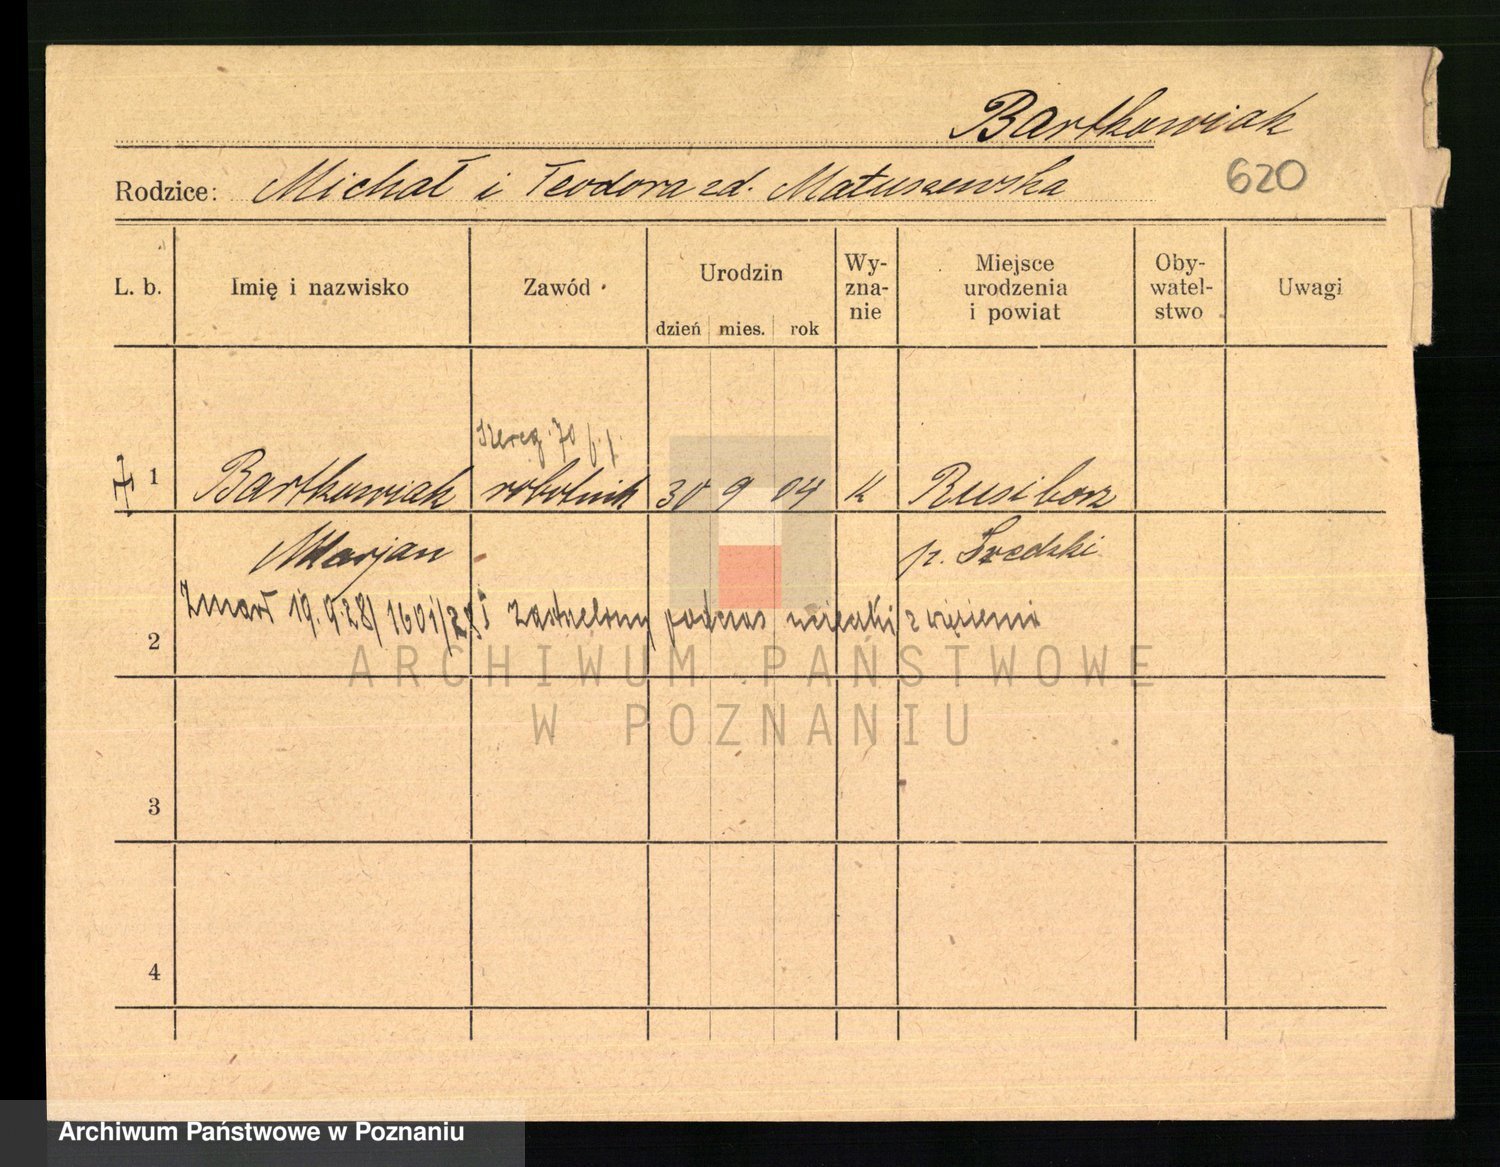 Bartkowiak
Rodzice: Michał i Teodora zd. Matuszewska
620
L. b.
Imię i nazwisko
Zawód
Urodzin
dzień mies. rok
Wy-
zna-
nie
Miejsce
urodzenia
i powiat
Oby-
watel-
stwo
Uwagi
szereg. 70 p.p.
1 Bartkowiak robotnik 30 9 04 K Rusiborz
Marjan p. Średzki
Zmarł 19.928/1601/28 zastrzelony podczas ucieczki z więzienia
2
3
4
ARCHIWUM PAŃSTWOWE
W POZNANIU
Archiwum Państwowe w Poznaniu